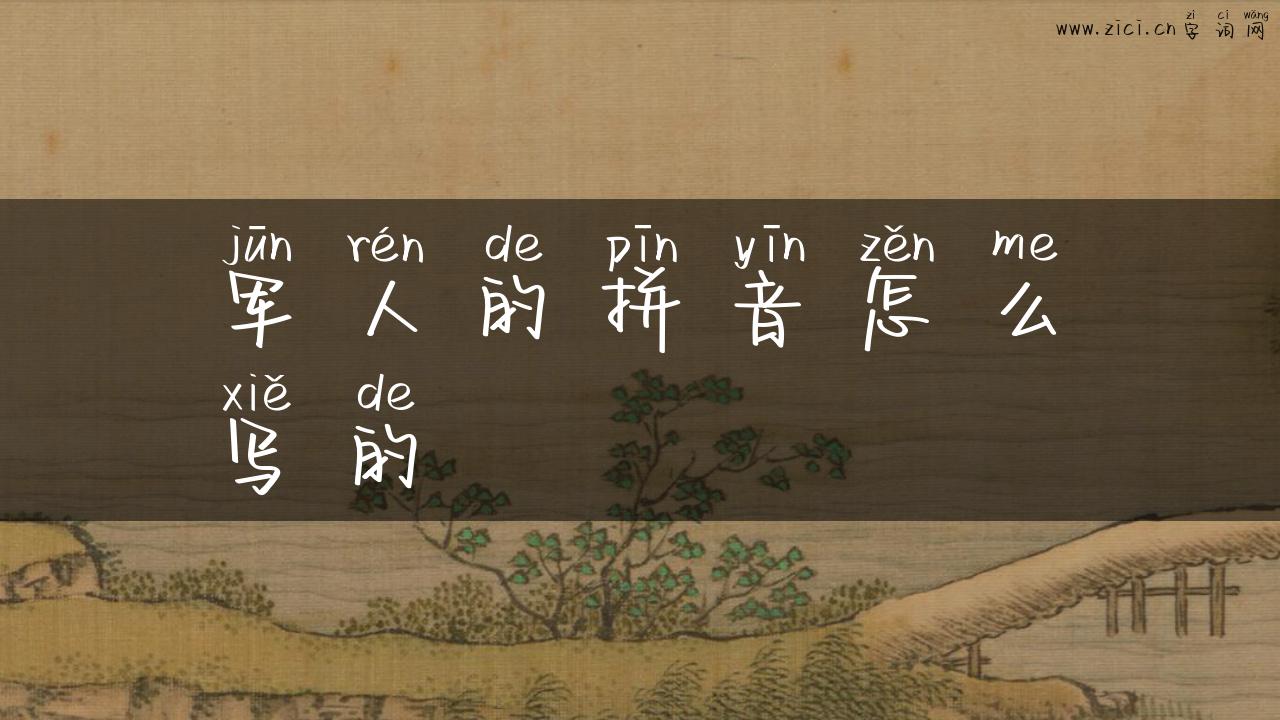 zì cí wǎng
www.zici.cn 字 词 网
jūn rén de pīn yīn zěn me
军 人 的 拼 音 怎 么
xiě de
写 的